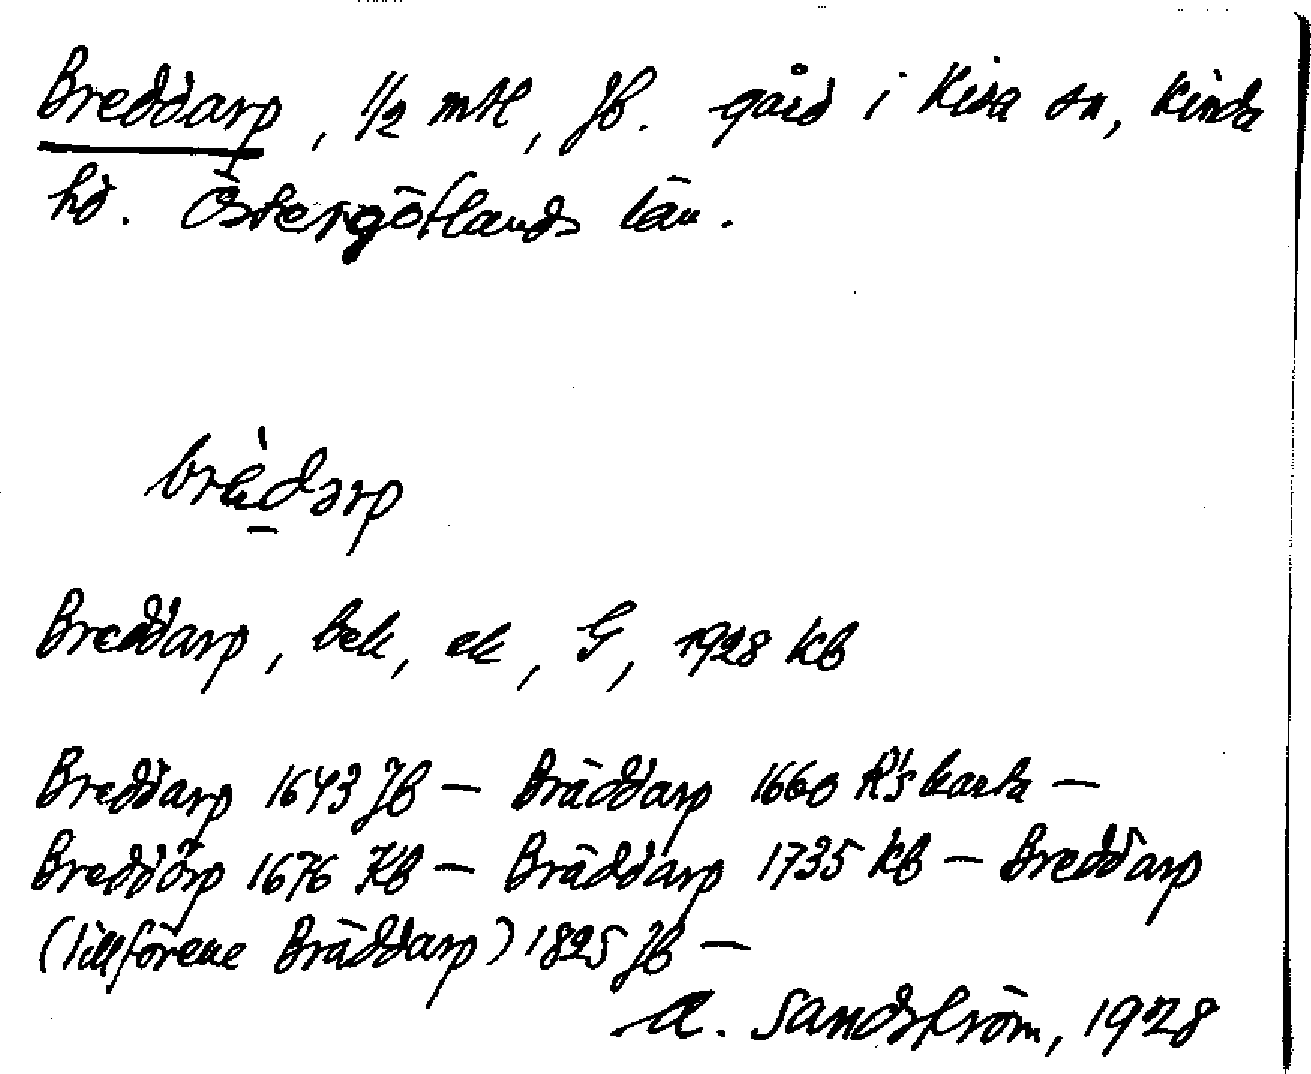 Breddarp, 1/2 mtl, Jb. gård i Kisa sn, Kinda
hd. Östergötlands län.
brädarp
Breddarp, bek, ek, G, 1928 KB
Breddarp 1643 JB – Bräddarp 1660 R's karta –
Breddörp 1676 KB – Bräddarp 1735 KB – Breddarp
(tillförene Bräddarp) 1825 JB –
A. Sandström, 1928